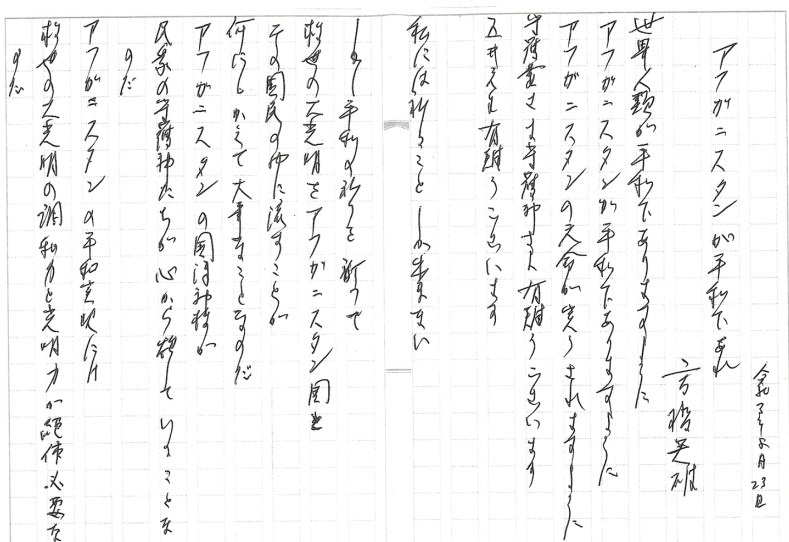 アフガニスタンが平和であれ
世界人類が平和でありますように
アフガニスタンが平和でありますように
アフガニスタンの天命が完うされますように
守護霊さま守護神さま有難うございます
五井先生有難うございます
私には祈ることしか出来ない
しかし平和の祈りを祈って
救世の大光明をアフガニスタン国と
その国民の中に流すことが
何にもかえて大事なことなのだ
アフガニスタンの国津神様が
民家の守護神たちが心から欲していることな
のだ
アフガニスタンの平和実現には
救世の大光明の調和力と光明力が絶体必要な
のだ